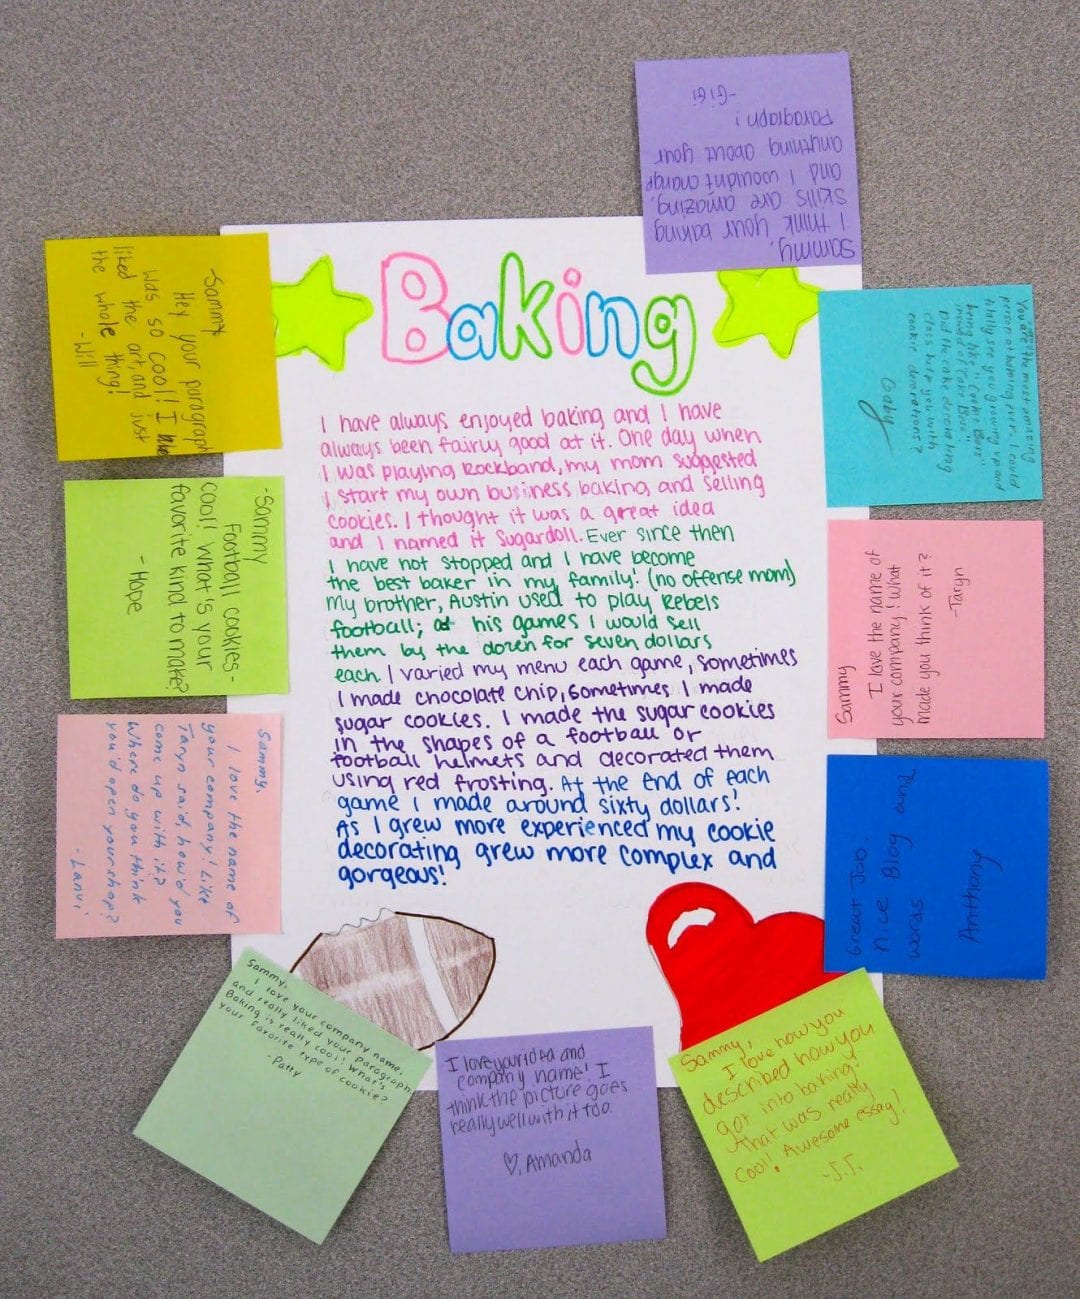 Baking
I have always enjoyed baking and I have
always been fairly good at it. One day when
I was playing Rockband, my mom suggested
I start my own business baking and selling
cookies. I thought it was a great idea
and I named it Sugardoll. Ever since then
I have not stopped and I have become
the best baker in my family! (no offense mom)
My brother, Austin used to play Rebels
football; at his games I would sell
them by the dozen for seven dollars
each. I varied my menu each game, sometimes
I made chocolate chip, sometimes I made
sugar cookies. I made the sugar cookies
in the shapes of a football or
football helmets and decorated them
using red frosting. At the end of each
game I made around sixty dollars!
As I grew more experienced my cookie
decorating grew more complex and
gorgeous!
Sammy,
I think your baking
skills are amazing,
and I wouldn't change
anything about your
Paragraph!
-GiGi
You are the most amazing
person at baking ever. I could
totally see you growing up and
being like "Cookie Boss"
instead of cake Boss".
Did the cake decorating
class help you with
cookie decorations?
Gaby
Sammy
I love the name of
your company! What
made you think of it?
-Taryn
Great Job.
nice Blog and
words
Anthony
Sammy,
I love how you
described how you
got into baking.
that was really
cool! Awesome essay!
-J.J.
I love your idea and
company name! I
think the picture goes
really well with it too.
♡, Amanda
Sammy,
I love your company name,
and really liked your paragraph
Baking is really cool! What's
your favorite type of cookie?
-Patty
Sammy,
I love the name of
your company! Like
Taryn said, how'd you
come up with it?
Where do you think
you'd open your shop?
-Lanvi
-Sammy
Football cookies-
cool! What's your
favorite kind to make?
- Hope
-Sammy
Hey your paragraph
was so cool! I
liked the art, and just
the whole thing!
-Will